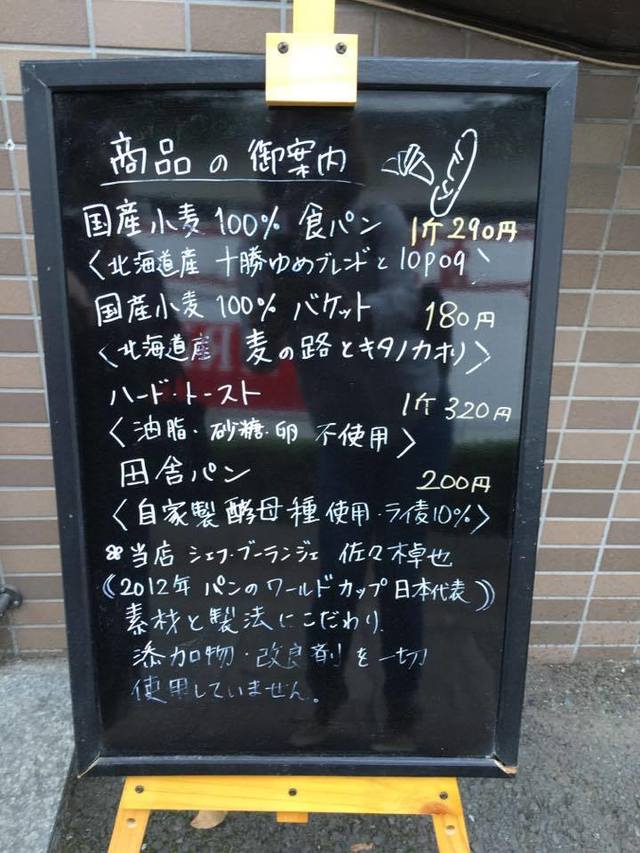 商品の御案内
国産小麦100% 食パン 1斤290円
〈北海道産 十勝ゆめブレンドと
国産小麦100% バケット 180円
〈北海道産 麦の路とキタノカオリ〉
ハード・トースト 1斤320円
〈油脂・砂糖・卵 不使用〉
田舎パン 200円
〈自家製酵母種使用・ライ麦10%〉
当店 シェフ・ブーランジェ 佐々木卓也
《2012年 パンのワールドカップ日本代表》
素材と製法にこだわり
添加物・改良剤を一切
使用していません。